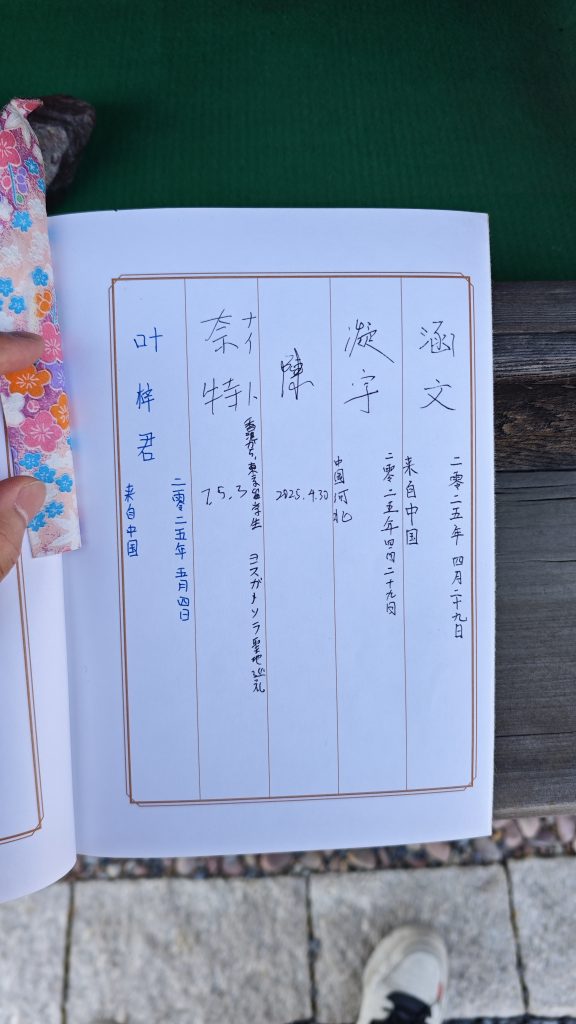 涵文
二零二五年 四月二十九日
来自中国
凝宇
二零二五年四月二十九日
中国河北
陳
2025.4.30
奈特
ナイト
7.5.3
香港から、東京留学生 ヨスガノソラ聖地巡礼
叶梓君
二零二五年五月四日
来自中国